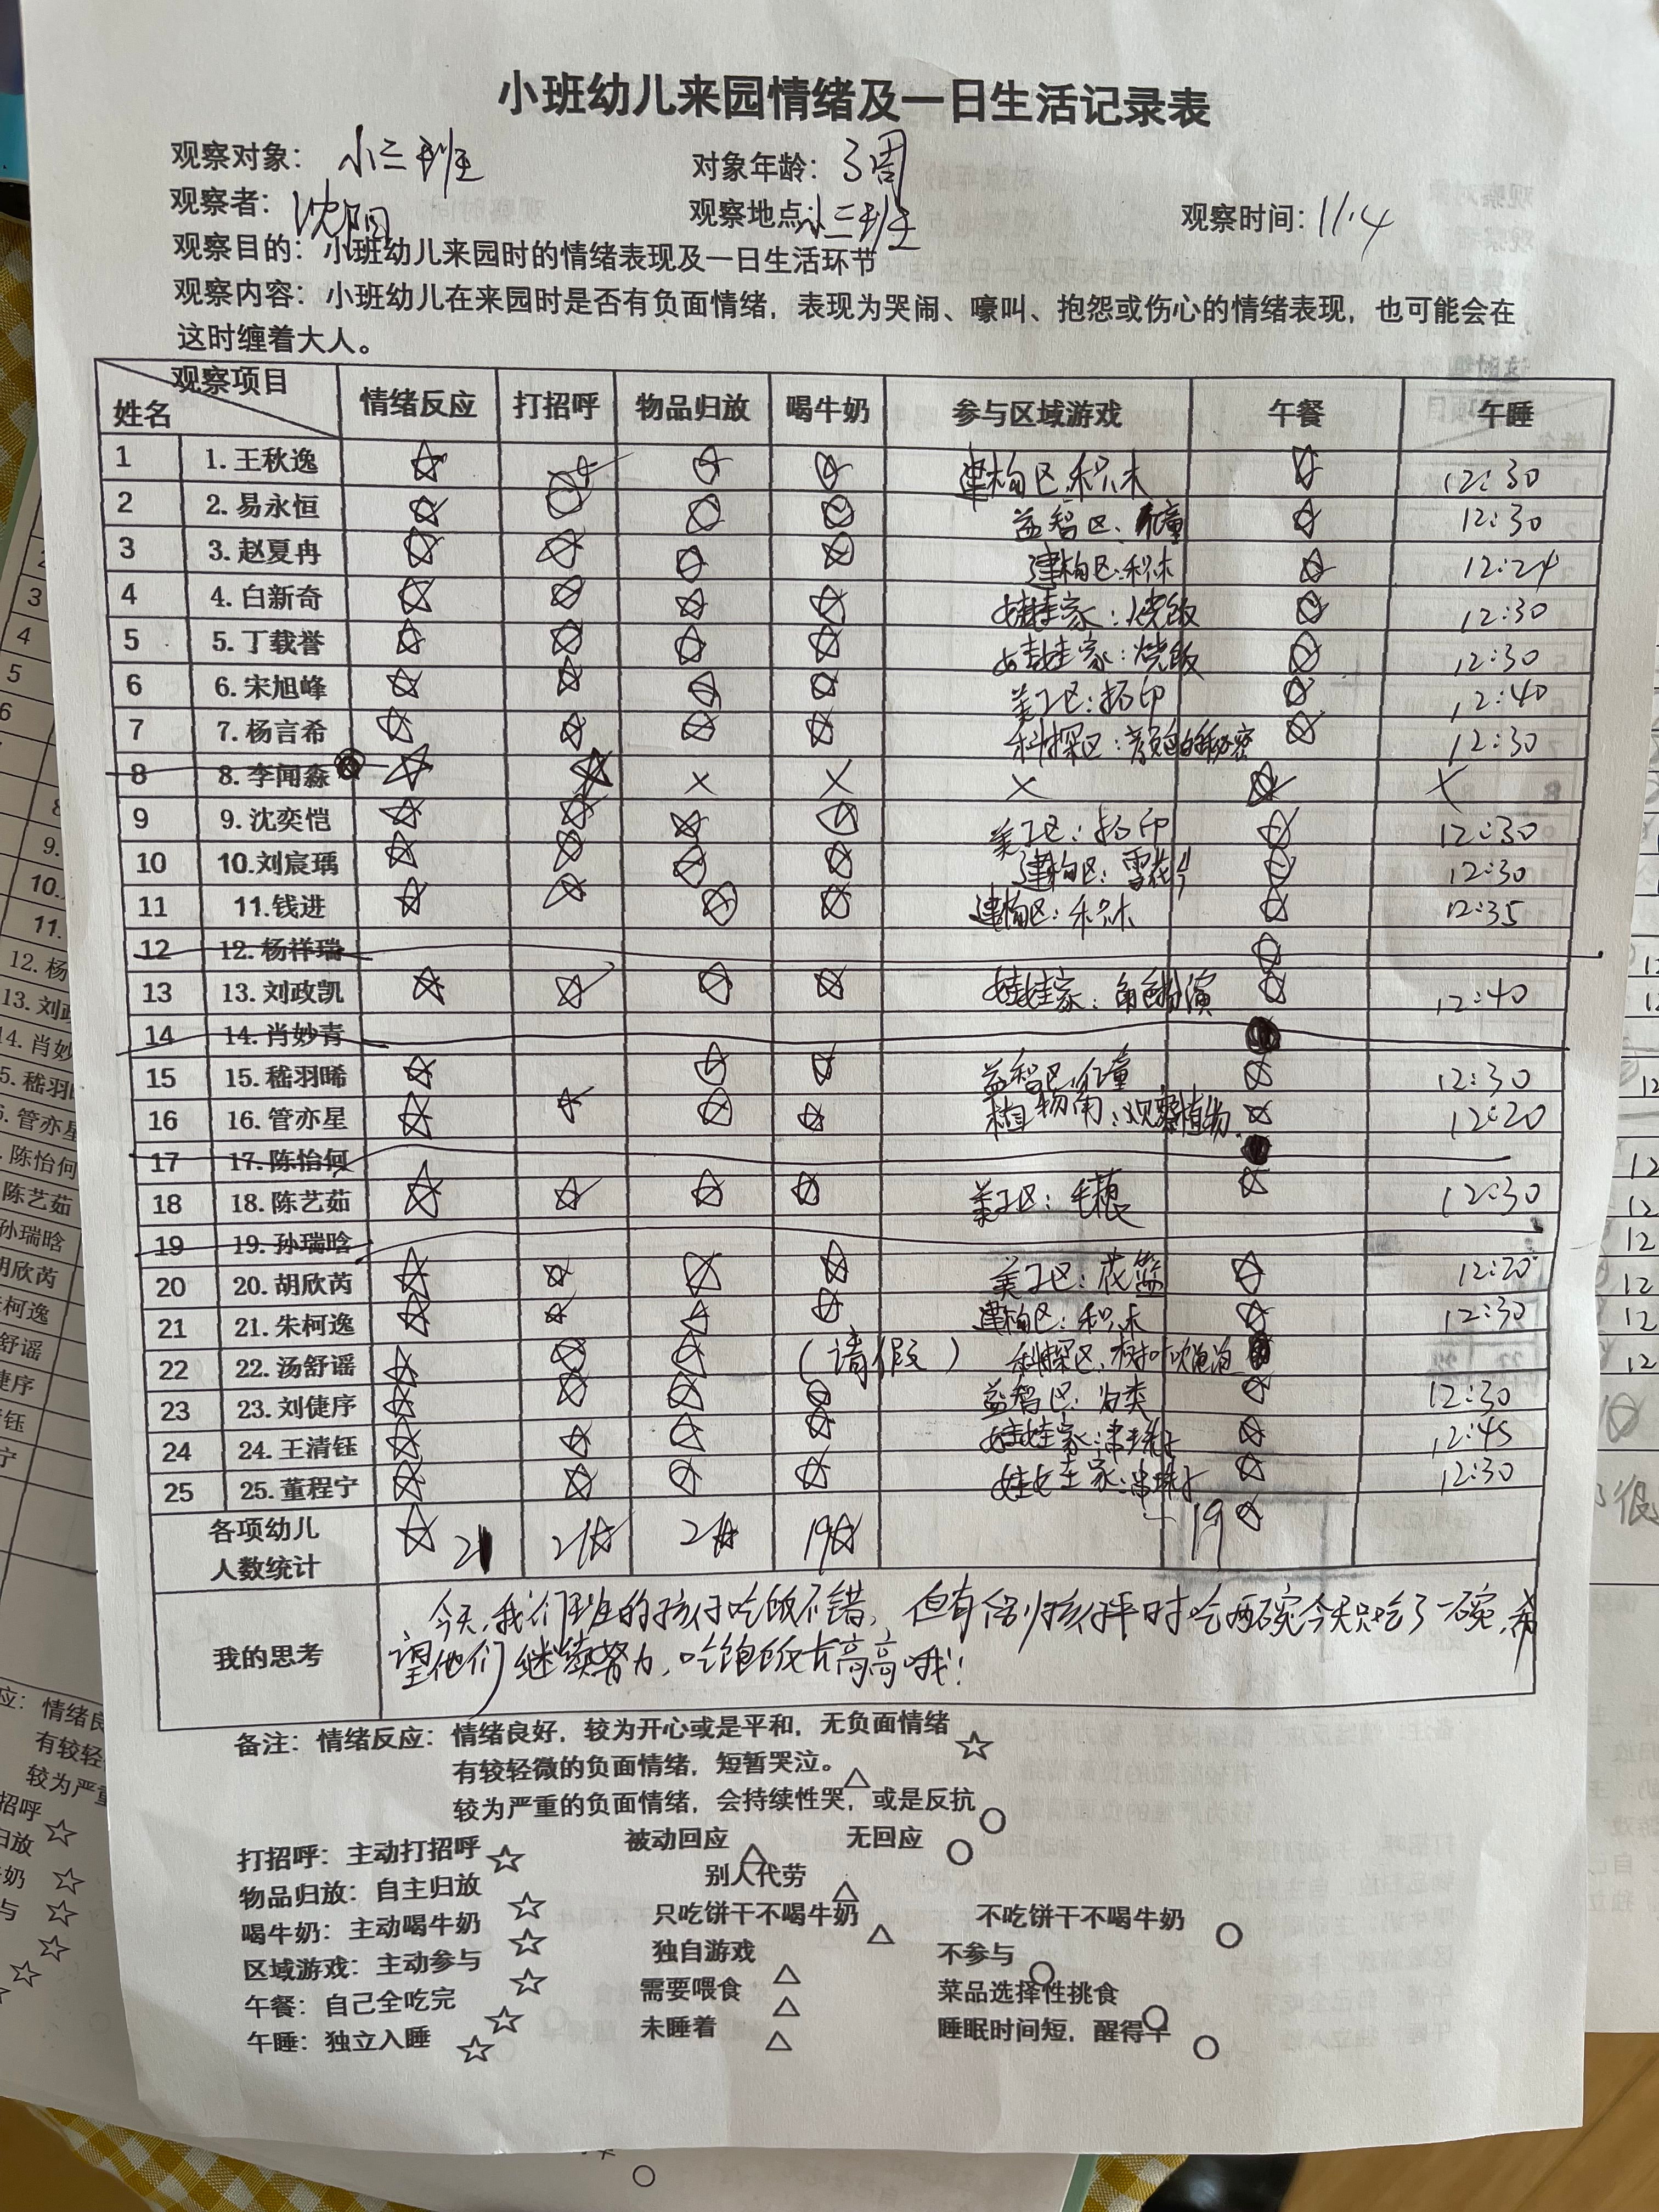 小班幼儿来园情绪及一日生活记录表
观察对象： 小三班 对象年龄：3周
观察者： 沈阳 观察地点：小三班 观察时间：11.4
观察目的：小班幼儿来园时的情绪表现及一日生活环节
观察内容：小班幼儿在来园时是否有负面情绪，表现为哭闹、嚎叫、抱怨或伤心的情绪表现，也可能会在
这时缠着大人。
观察项目 姓名 情绪反应 打招呼 物品归放 喝牛奶 参与区域游戏 午餐 午睡
1 1. 王秋逸 ☆ ☆ ☆ ☆ 建构区：积木 ☆ 12:30
2 2. 易永恒 ☆ ☆ ☆ ☆ 益智区： ☆ 12:30
3 3. 赵夏冉 ☆ ☆ ☆ ☆ 建构区：积木 ☆ 12:24
4 4. 白新奇 ☆ ☆ ☆ ☆ 娃娃家：烧饭 ☆ 12:30
5 5. 丁载誉 ☆ ☆ ☆ ☆ 娃娃家：烧饭 ☆ 12:30
6 6. 宋旭峰 ☆ ☆ ☆ ☆ 美工区：拓印 ☆ 12:40
7 7. 杨言希 ☆ ☆ ☆ ☆ 科探区：颜色的秘密 ☆ 12:30
8 8. 李闻淼 ☆ ☆ × × × ☆ ×
9 9. 沈奕恺 ☆ ☆ ☆ ☆ 美工区：拓印 ☆ 12:30
10 10.刘宸瑀 ☆ ☆ ☆ ☆ 建构区：雪花片 ☆ 12:30
11 11.钱进 ☆ ☆ ☆ ☆ 建构区：积木 ☆ 12:35
12 12. 杨祥瑞 ☆
13 13. 刘政凯 ☆ ☆ ☆ ☆ 娃娃家：角色扮演 ☆ 12:40
14 14. 肖妙青
15 15. 嵇羽晞 ☆ ☆ ☆ 益智区： ☆ 12:30
16 16. 管亦星 ☆ ☆ ☆ ☆ 植物角：观察植物. ☆ 12:20
17 17. 陈怡何
18 18. 陈艺茹 ☆ ☆ ☆ ☆ 美工区：毛根 ☆ 12:30
19 19. 孙瑞晗
20 20. 胡欣芮 ☆ ☆ ☆ ☆ 美工区：花篮 ☆ 12:20
21 21. 朱柯逸 ☆ ☆ ☆ ☆ 建构区：积木 ☆ 12:30
22 22. 汤舒谣 ☆ ☆ ☆ （请假） 科探区：树叶吹泡泡
23 23. 刘倢序 ☆ ☆ ☆ ☆ 益智区：归类 ☆ 12:30
24 24. 王清钰 ☆ ☆ ☆ ☆ 娃娃家：串珠子 ☆ 12:45
25 25. 董程宁 ☆ ☆ ☆ ☆ 娃娃家：串珠子 ☆ 12:30
各项幼儿
人数统计 ☆ 21 21☆ 21☆ 19☆ 19 ☆
今天，我们班的孩子吃饭不错，但有个别孩子平时吃两碗今天只吃了一碗，希
我的思考 望他们继续努力，吃饱饭长高高哦！
备注：情绪反应：情绪良好，较为开心或是平和，无负面情绪 ☆
有较轻微的负面情绪，短暂哭泣。 △
较为严重的负面情绪，会持续性哭，或是反抗 ○
打招呼：主动打招呼 ☆ 被动回应 △ 无回应 ○
物品归放：自主归放 ☆ 别人代劳 △
喝牛奶：主动喝牛奶 ☆ 只吃饼干不喝牛奶 △ 不吃饼干不喝牛奶 ○
区域游戏：主动参与 ☆ 独自游戏 △ 不参与 ○
午餐：自己全吃完 ☆ 需要喂食 △ 菜品选择性挑食 ○
午睡：独立入睡 ☆ 未睡着 △ 睡眠时间短，醒得早 ○